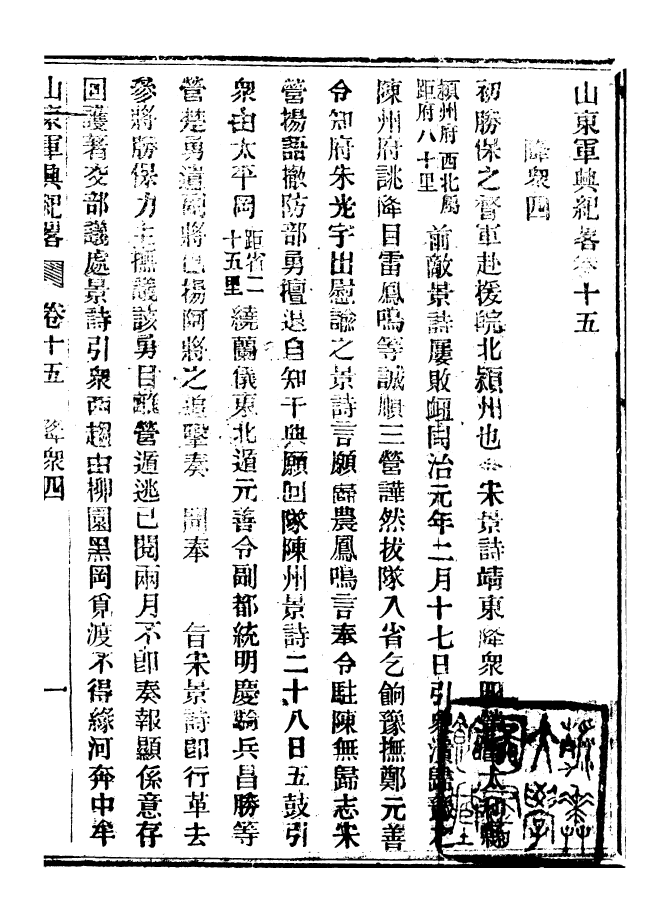 山東軍興紀畧卷十五
降衆四
初勝保之督軍赴援皖北潁州也令宋景詩靖東降衆四營太和縣
潁州府西北屬
距府八十里
前敵景詩屢敗衂同治元年二月十七日引衆潰歸豫之
陳州府誂降目雷鳳鳴等誠順三營譁然拔隊入省乞餉豫撫鄭元善
令知府朱光宇出慰諭之景詩言願歸農鳳鳴言奉令駐陳無歸志宋
營揚語撤防部勇擅退自知干典願回隊陳州景詩二十八日五鼓引
衆由太平岡
距省二
十五里
繞蘭儀東北遁元善令副都統明慶驍兵昌勝等
營楚勇遣副將揚阿將之追擊奏聞奉
旨宋景詩即行革去
參將勝保力主撫議該勇目離營遁逃已閱兩月不即奏報顯係意存
回護著交部議處景詩引衆西趨由柳園黑岡覓渡不得緣河奔中牟
山東軍興紀畧 卷十五 降衆四 一